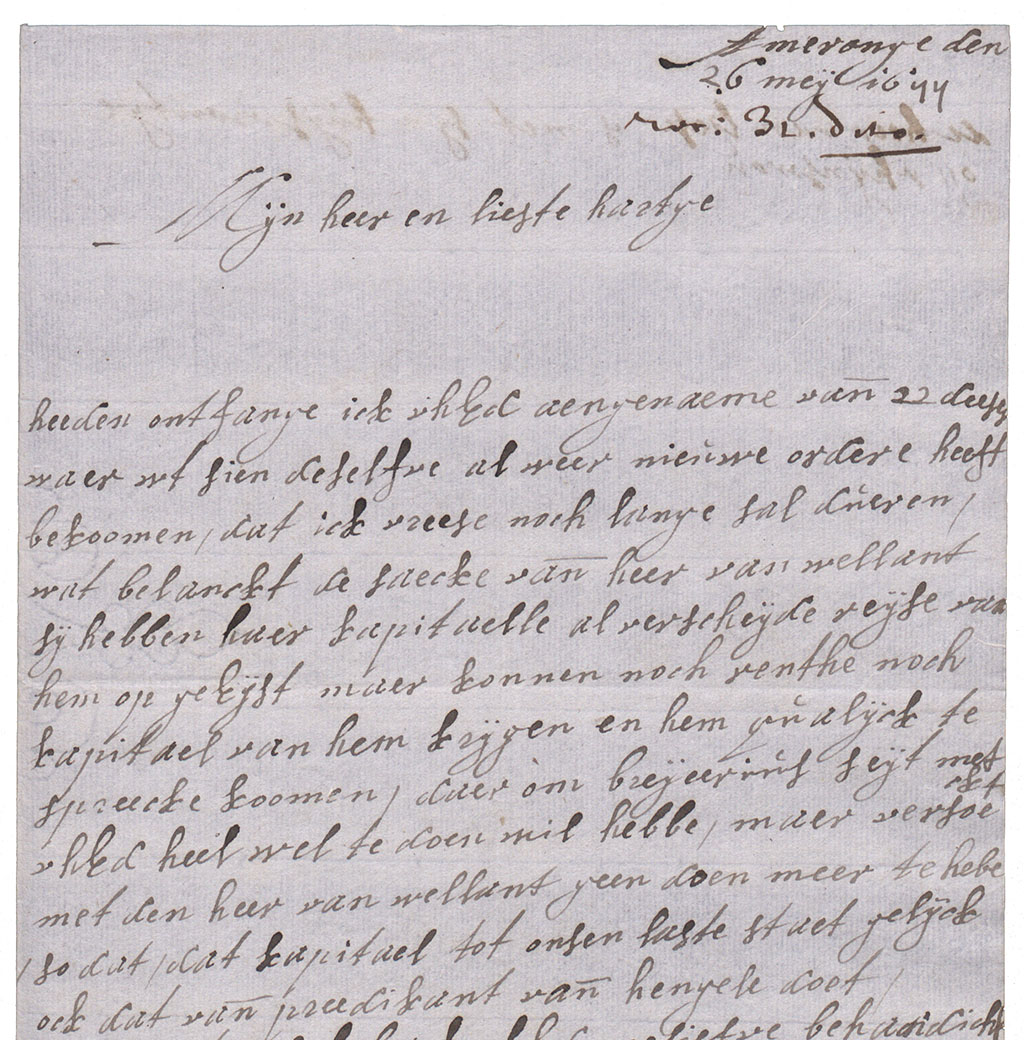 Ameronge den
26 meij 1677
rec: 31. dito.
Mijn heer en lieste hartge
heeden ontfange ick uhEd aengenaeme van 22 deeser
waer wt sien deselfve al weer nieuwe ordere heeft
bekoomen, dat ick vreese noch lange sal dueren,
wat belanckt de saecke van heer van wellant
sij hebben haer kapitaelle al verscheijde reijse van
hem op gekijst maer konnen noch renthe noch
kapitael van hem krijgen en hem qualijck te
spreecke koomen, daer om breijeerius seijt met
uhEd heel wel te doen wil hebbe, maer versoeckt
met den heer van wellant geen doen meer te hebe
so dat, dat kapitael tot onsen laste staet gelijck
ock dat van preedikant van hengele doet,